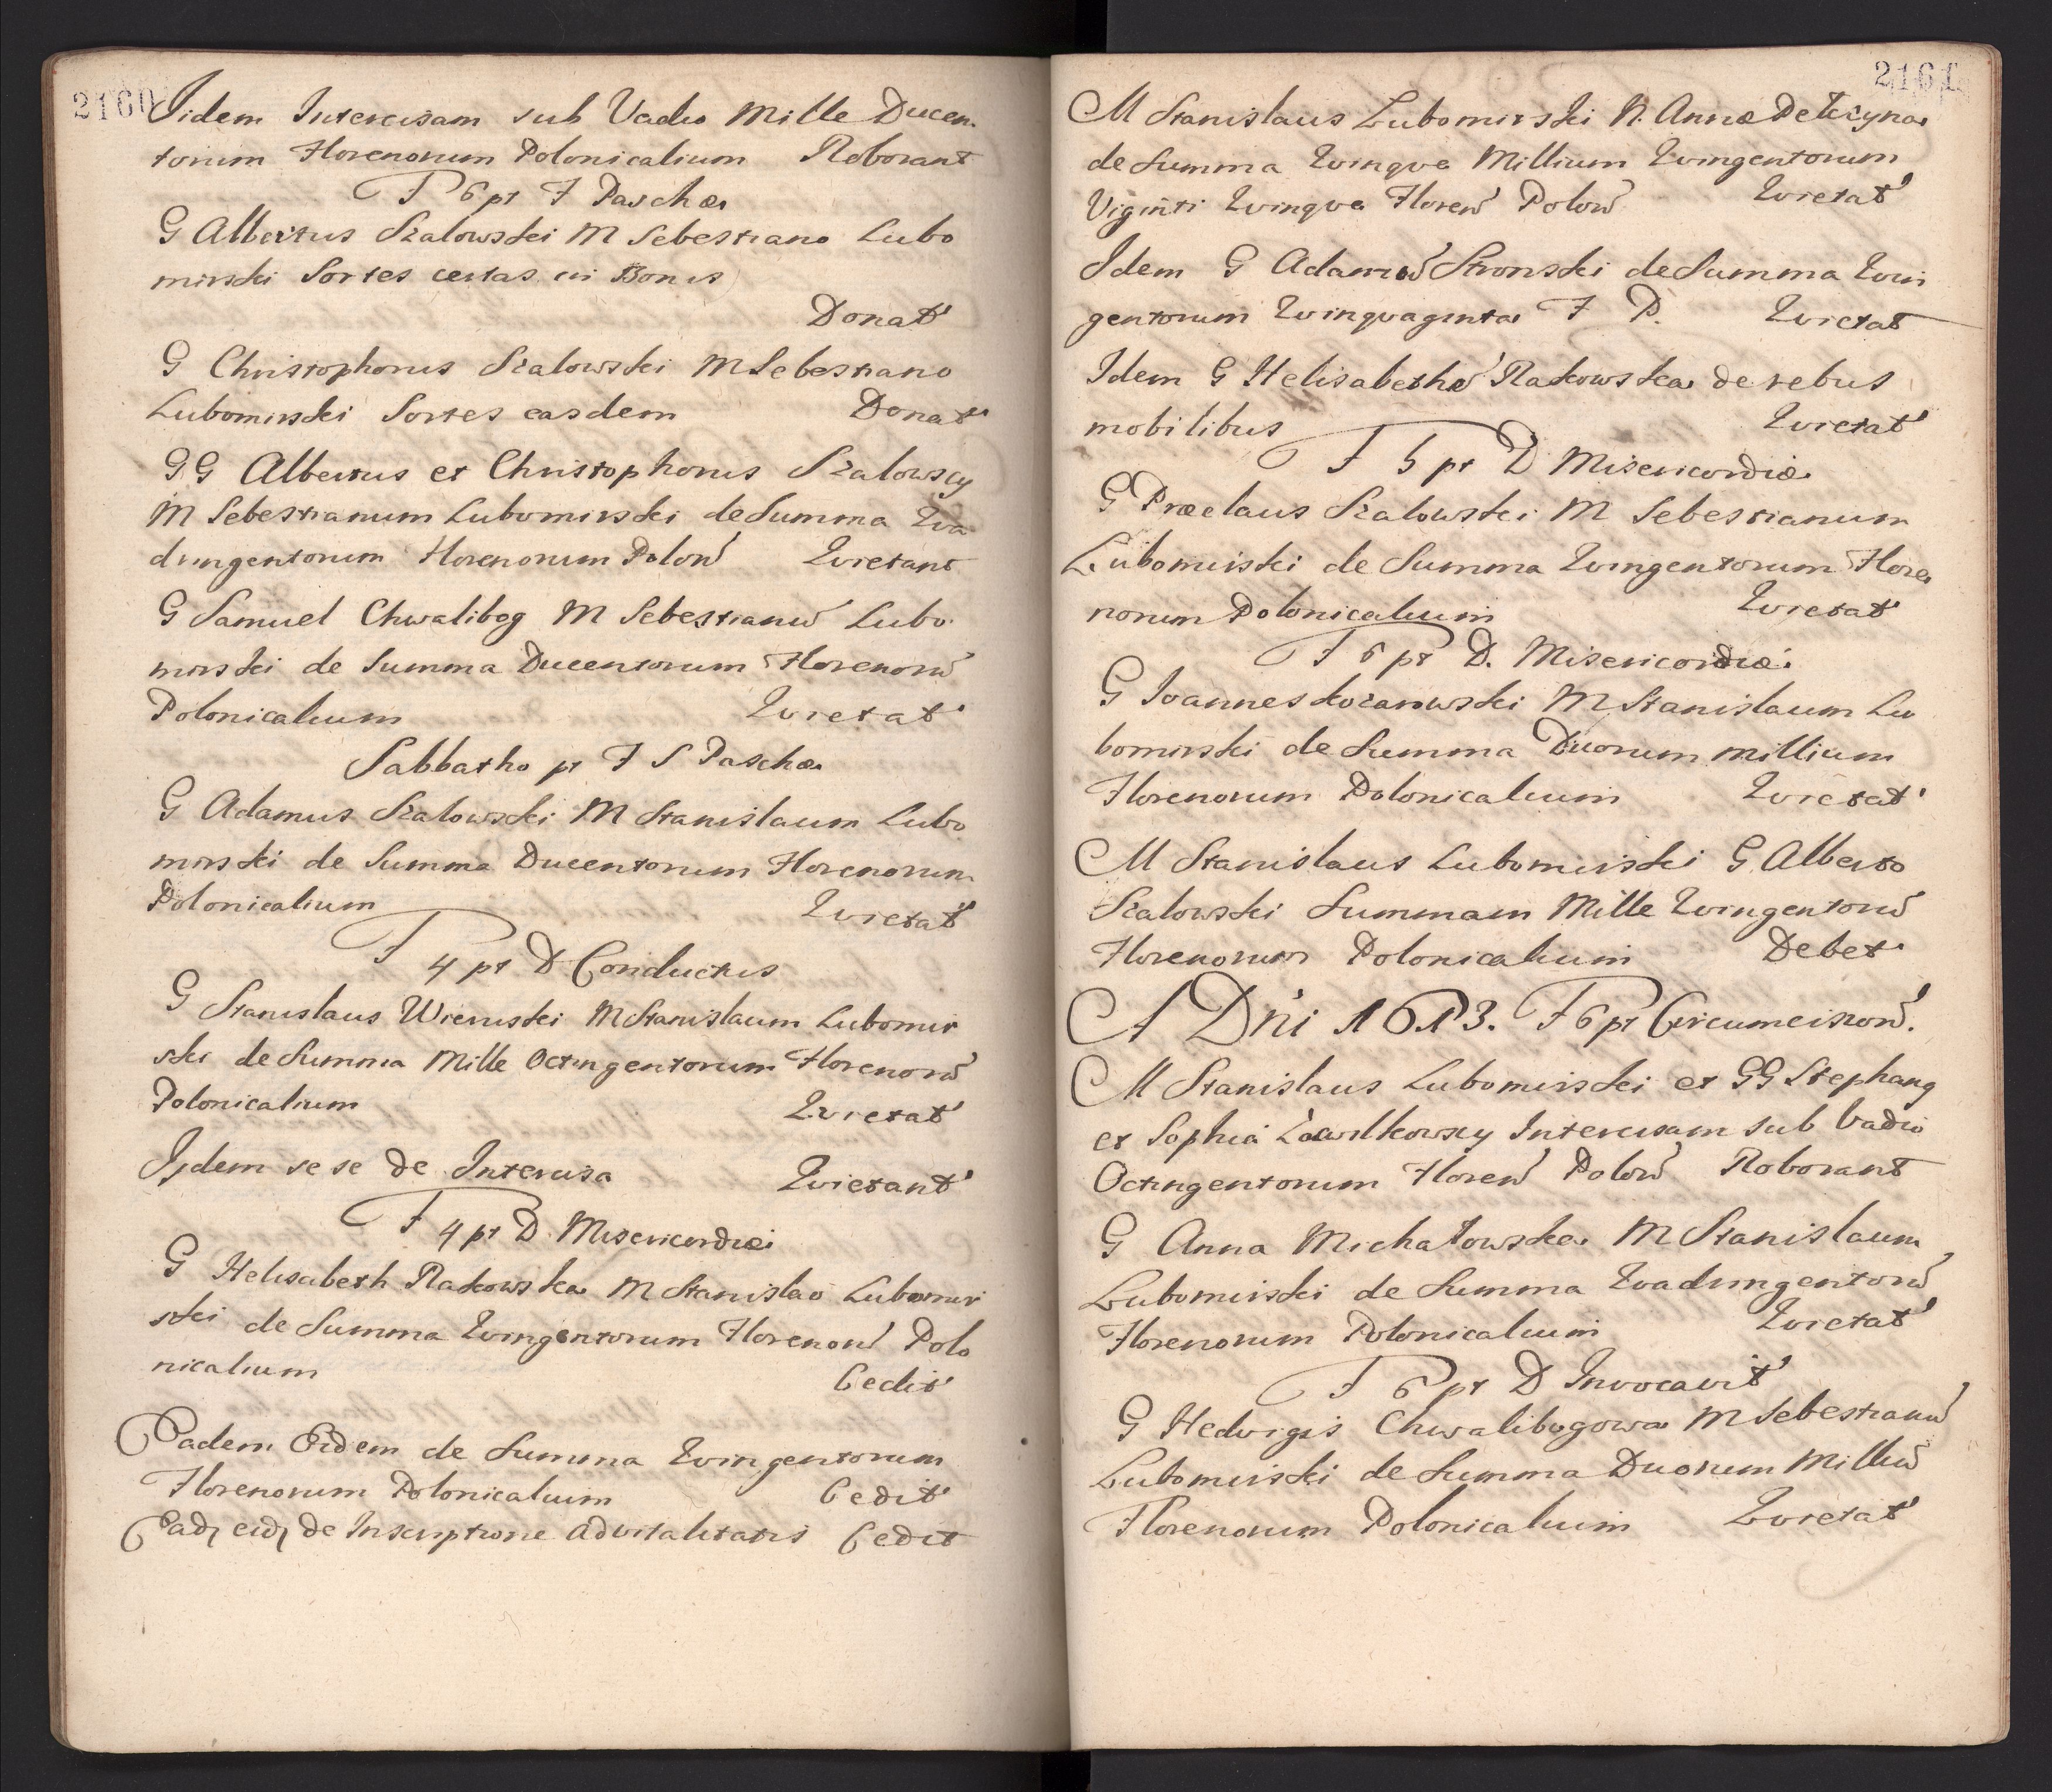 2160
Iidem Intercisam sub Vadio Mille Ducen
torum Florenorum Polonicalium Roborant
F 6 pt F Paschæ
G Albertus Szalowski M Sebestiano Lubo
mirski Sortes certas in Bonis
Donat
G Christophorus Szalowski M Sebestiano
Lubomirski Sortes easdem Donat
GG Albertus et Christophorus Szalowscy
M Sebestianum Lubomirski de Summa Qva
dringentorum Florenorum Polon Qvietant
G Samuel Chwalibog M Sebestianu Lubo
mirski de Summa Ducentorum Florenoru
Polonicalium Qvietat
Sabbatho pt F S Paschæ
G Adamus Szalowski M Stanislaum Lubo
mirski de Summa Ducentorum Florenorum
Polonicalium Qvietat
F 4 pt D Conductus
G Stanislaus Wieruski M Stanislaum Lubomir
ski de Summa Mille Octingentorum Florenoru
Polonicalium Qvietat
Ijdem se se de Intercisa Qvietant
F 4 pt D Misericordiæ
G Helisabeth Rakowska M Stanislao Lubomir
ski de Summa Qvingentorum Florenoru Polo
nicalium Cedit
Eadem Eidem de Summa Qvingentorum
Florenorum Polonicalium Cedit
Ead eid de Inscriptione advitalitatis Cedit
2161
M Stanislaus Lubomirski N. Annæ
de Summa Qvinqve Millium Qvingentorum
Viginti Qvinqve Floren Polon Qvietat
Idem G Adamu Stronski de Summa Qvin
gentorum Qvinqvaginta F P. Qvietat
Idem G Helisabethe Rakowska de rebus
mobilibus Qvietat
F 5 pt D Misericordiæ
G Præclaus Szalowski M Sebestianum
Lubomirski de Summa Qvingentorum Flore
norum Polonicalium Qvietat
F 6 pt D. Misericordiæ
G Joannes M Stanislaum Lu
bomirski de Summa Duorum millium
Florenorum Polonicalium Qvietat
M Stanislaus Lubomirski G Alberto
Szalowski Summam Mille Qvingentoru
Florenorum Polonicalium Debet
A Dni 1613. F 6 pt Circumcision.
M Stanislaus Lubomirski et GG Stephang
et Sophia Intercisam sub Vadio
Octingentorum Floren Polon Roborant
G Anna Michałowska M Stanislaum
Lubomirski de Summa Qvadringentoru
Florenorum Polonicalium Qvietat
F 6 pt D Invocavit
G Hedvigis Chwalibogowa M Sebestianu
Lubomirski de Summa Duorum Milliu
Florenorum Polonicalium Qvietat